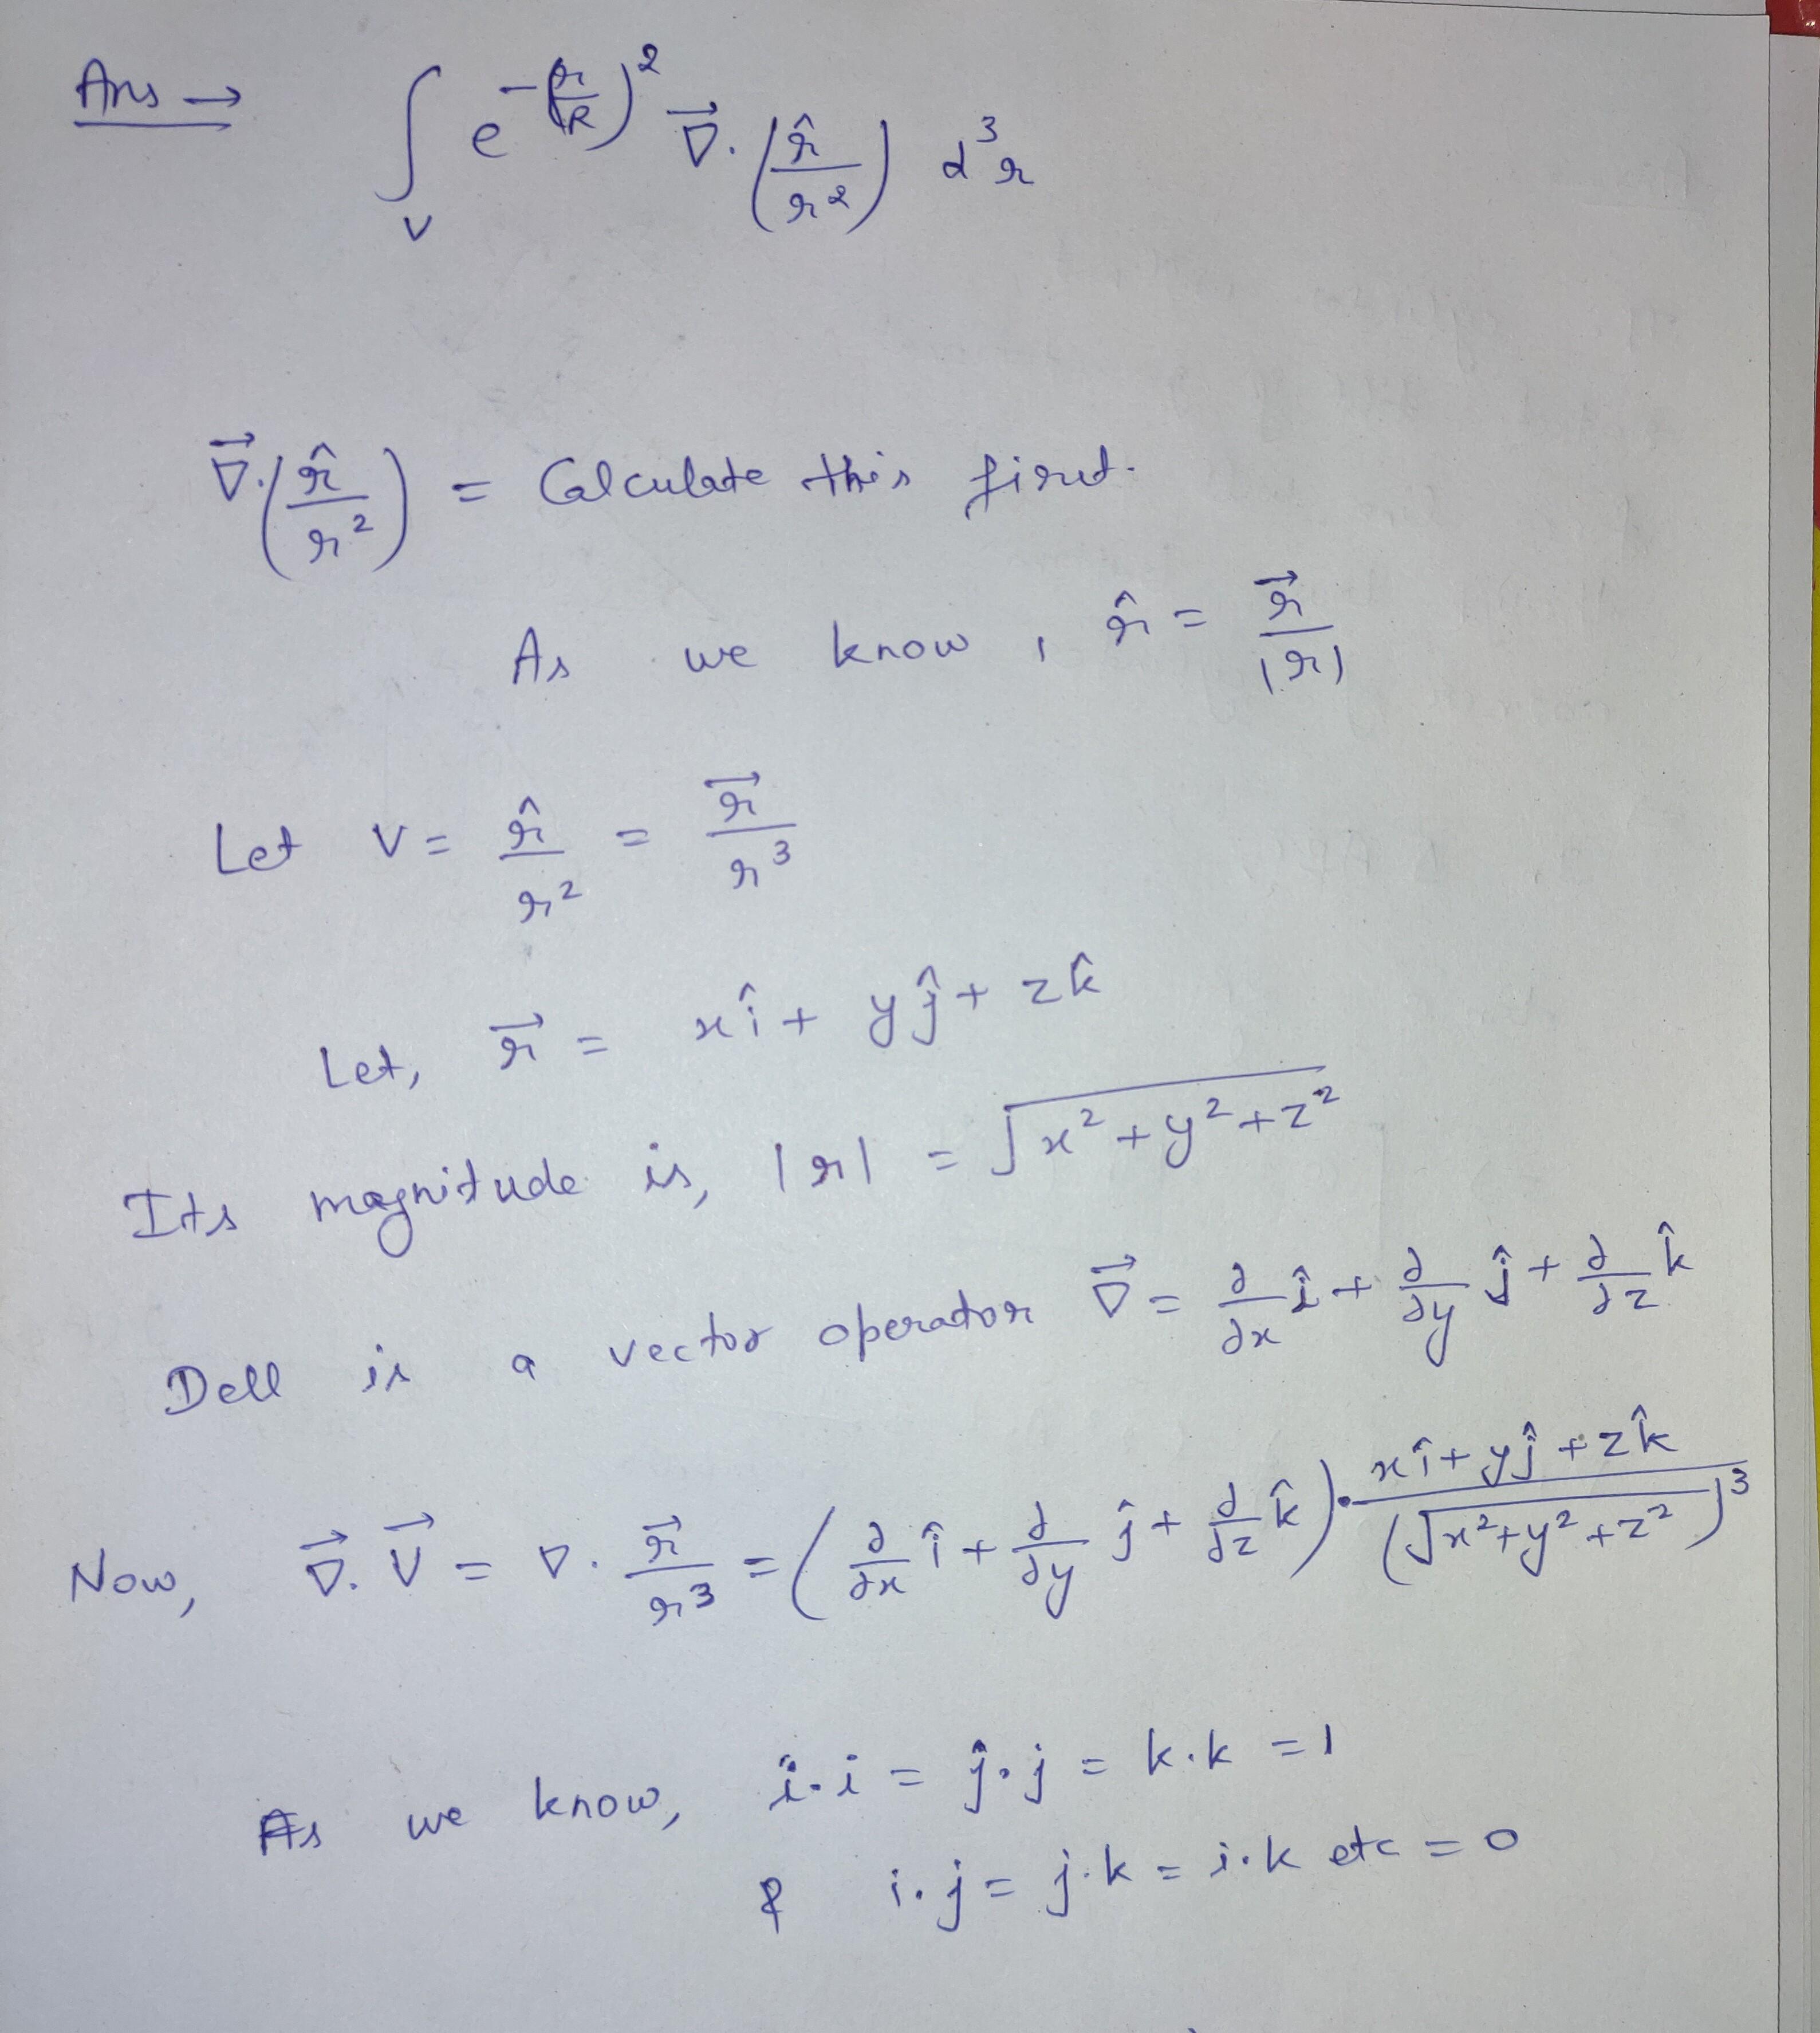 Ans → ∫_V e^{-(r/R)^2} \vec{∇}.(\hat{r}/r^2) d^3r
\vec{∇}.(\hat{r}/r^2) = Calculate this first.
As we know, \hat{r} = \vec{r}/|r|
Let V = \hat{r}/r^2 = \vec{r}/r^3
Let, \vec{r} = x\hat{i} + y\hat{j} + z\hat{k}
Its magnitude is, |r| = √(x^2+y^2+z^2)
Dell is a vector operator \vec{∇} = ∂/∂x \hat{i} + ∂/∂y \hat{j} + ∂/∂z \hat{k}
Now, \vec{∇}.\vec{V} = ∇.\vec{r}/r^3 = (∂/∂x \hat{i} + ∂/∂y \hat{j} + ∂/∂z \hat{k}).(x\hat{i}+y\hat{j}+z\hat{k})/(√(x^2+y^2+z^2))^3
As we know, i.i = j.j = k.k = 1
& i.j = j.k = i.k etc = 0